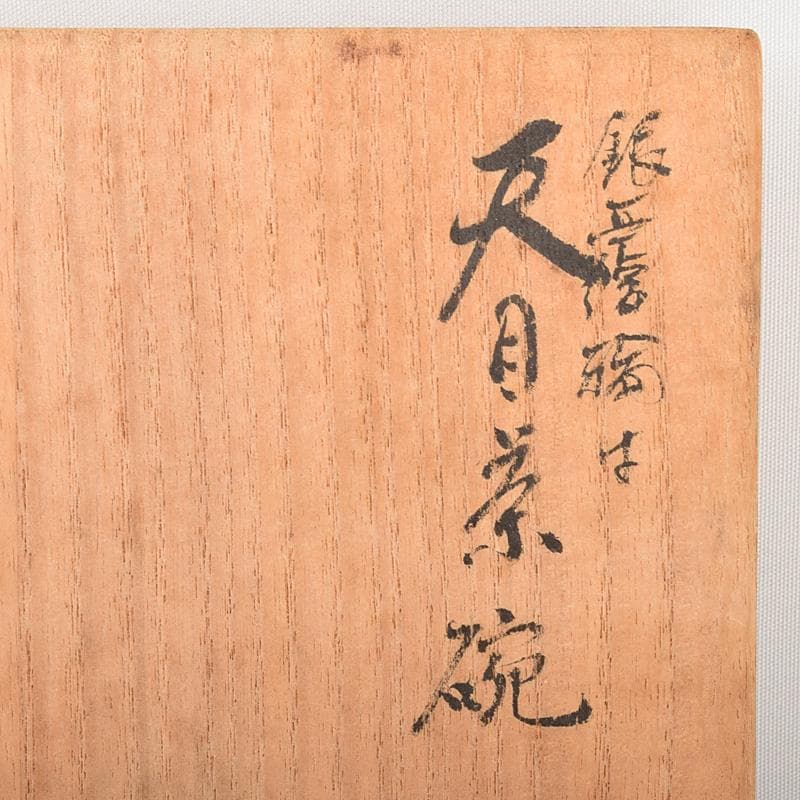 銀覆輪
天目茶碗